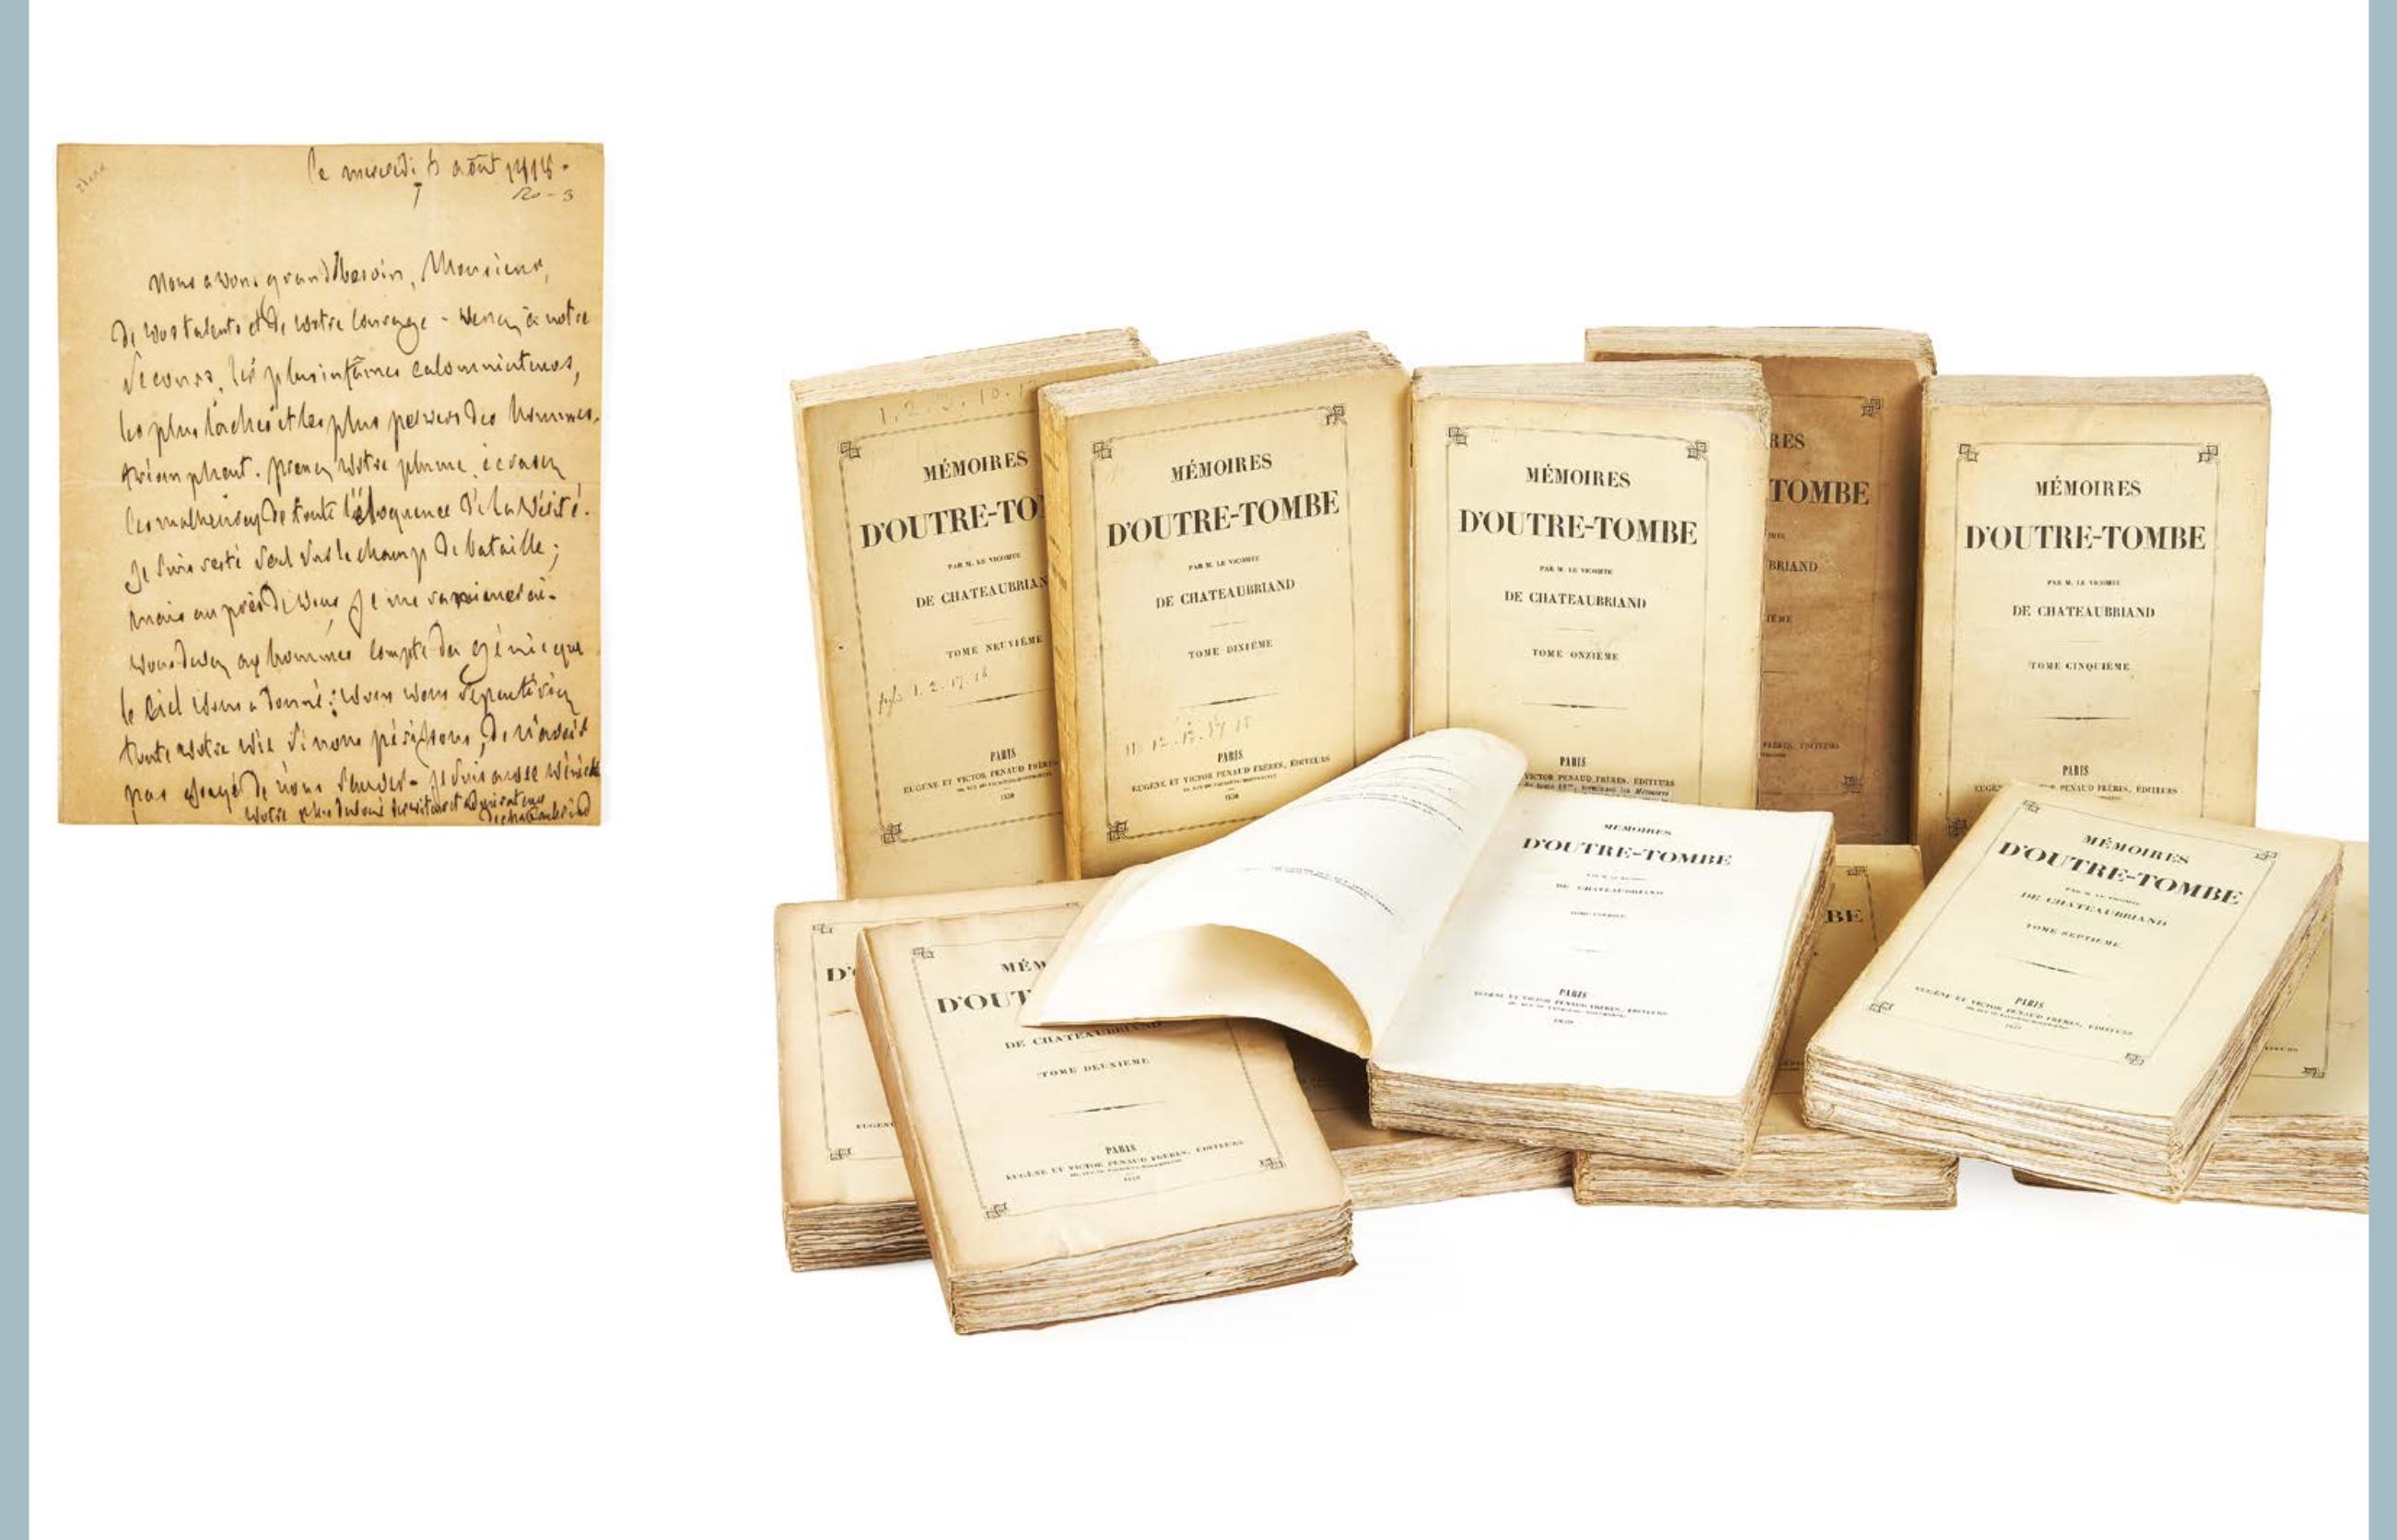 le mercredi 5 août 1818.
20-3
Nous avons grand besoin, Monsieur,
de vos talents et de votre courage - venez à notre
secours, les plus infâmes calomniateurs,
les plus lâches et les plus pervers des hommes,
triomphent. prenez votre plume, écrasez
les malheureux de toute l'éloquence de la vérité.
Je suis resté seul sur le champ de bataille ;
mais auprès de vous, je me ranimerai.
vous devez aux hommes compte du génie que
le ciel vous a donné : vous vous repentiriez
toute votre vie si nous périssons, de n'avoir
pas essayé de nous sauver - je suis avec
votre plus dévoué serviteur et admirateur
de chateaubriand
1. 2. 3. 10. 1
MÉMOIRES
D'OUTRE-TO
PAR M. LE VICOMTE
DE CHATEAUBRIAN
TOME NEUVIÈME
1. 2. 17. 18
PARIS
EUGÈNE ET VICTOR PENAUD FRÈRES
1850
MÉMOIRES
D'OUTRE-TOMBE
PAR M. LE VICOMTE
DE CHATEAUBRIAND
TOME DIXIÈME
PARIS
EUGÈNE ET VICTOR PENAUD FRÈRES, ÉDITEURS
1850
MÉMOIRES
D'OUTRE-TOMBE
PAR M. LE VICOMTE
DE CHATEAUBRIAND
TOME ONZIÈME
PARIS
VICTOR PENAUD FRÈRES, ÉDITEURS
RES
TOMBE
BRIAND
IÈME
FRÈRES, ÉDITEURS
MÉMOIRES
D'OUTRE-TOMBE
PAR M. LE VICOMTE
DE CHATEAUBRIAND
TOME CINQUIÈME
PARIS
PENAUD FRÈRES, ÉDITEURS
D'
EUGÈN
MÉM
D'OUT
DE CHATEAUBRIAND
TOME DEUXIÈME
PARIS
EUGÈNE ET VICTOR PENAUD FRÈRES, ÉDITEURS
1849
MÉMOIRES
D'OUTRE-TOMBE
DE CHATEAUBRIAND
PARIS
EUGÈNE ET VICTOR PENAUD FRÈRES, ÉDITEURS
BE
MÉMOIRES
D'OUTRE-TOMBE
PAR M. LE VICOMTE
DE CHATEAUBRIAND
TOME SEPTIÈME
PARIS
EUGÈNE ET VICTOR PENAUD FRÈRES, ÉDITEURS